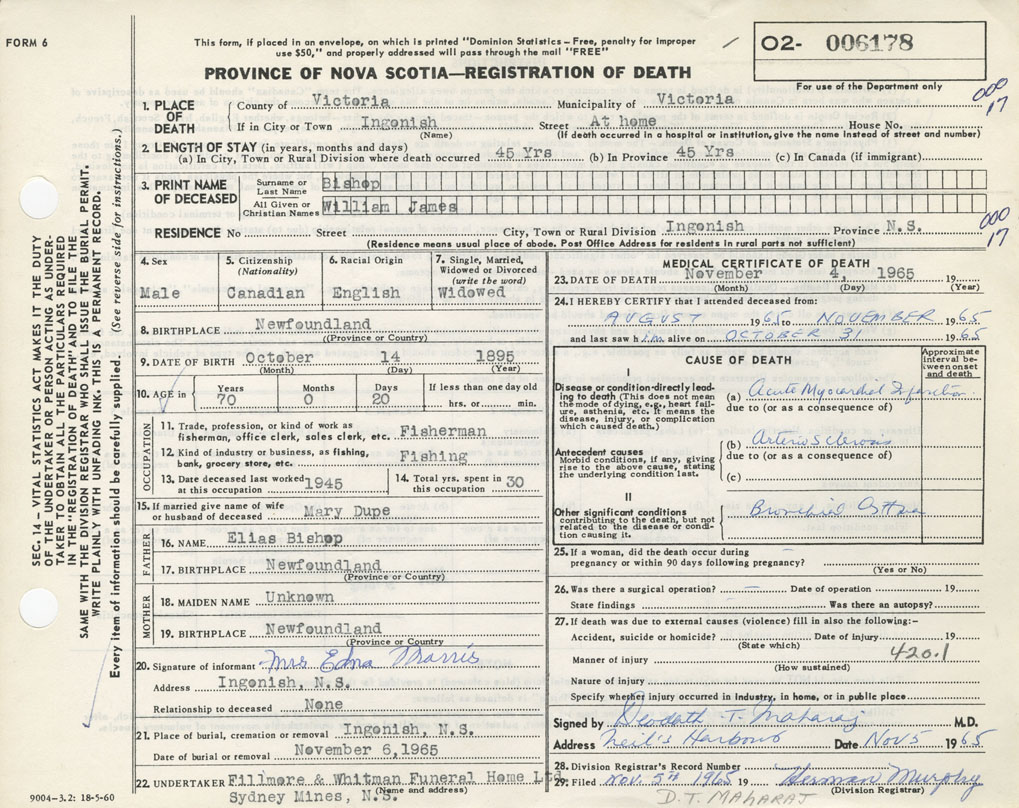 FORM 6
This form, if placed in an envelope, on which is printed "Dominion Statistics - Free, penalty for improper
use $50," and properly addressed will pass through the mail "FREE"
02- 006178
For use of the Department only
PROVINCE OF NOVA SCOTIA—REGISTRATION OF DEATH
000
17
1. PLACE OF DEATH { County of Victoria Municipality of Victoria
If in City or Town Ingonish (Name) Street At home House No.
(If death occurred in a hospital or institution, give the name instead of street and number)
2. LENGTH OF STAY (in years, months and days)
(a) In City, Town or Rural Division where death occurred 45 Yrs (b) In Province 45 Yrs (c) In Canada (if immigrant)
3. PRINT NAME OF DECEASED { Surname or Last Name Bishop
All Given or Christian Names William James
RESIDENCE No. Street City, Town or Rural Division Ingonish Province N.S.
000
17
(Residence means usual place of abode. Post Office Address for residents in rural parts not sufficient)
4. Sex Male
5. Citizenship (Nationality) Canadian
6. Racial Origin English
7. Single, Married, Widowed or Divorced (write the word) Widowed
8. BIRTHPLACE Newfoundland
(Province or Country)
9. DATE OF BIRTH October 14 1895
(Month) (Day) (Year)
10. AGE in { Years 70 Months 0 Days 20 If less than one day old hrs. or min.
OCCUPATION
11. Trade, profession, or kind of work as
fisherman, office clerk, sales clerk, etc. Fisherman
12. Kind of industry or business, as fishing,
bank, grocery store, etc. Fishing
13. Date deceased last worked at this occupation 1945
14. Total yrs. spent in this occupation 30
15. If married give name of wife
or husband of deceased Mary Dupe
FATHER
16. NAME Elias Bishop
17. BIRTHPLACE Newfoundland
(Province or Country)
MOTHER
18. MAIDEN NAME Unknown
19. BIRTHPLACE Newfoundland
(Province or Country
20. Signature of informant Mrs Edna Morris
Address Ingonish, N.S.
Relationship to deceased None
21. Place of burial, cremation or removal Ingonish, N.S.
Date of burial or removal November 6,1965
22. UNDERTAKER Fillmore & Whitman Funeral Home Ltd
(Name and address)
Sydney Mines, N.S.
MEDICAL CERTIFICATE OF DEATH
23. DATE OF DEATH November 4, 1965 19
(Month) (Day) (Year)
24. I HEREBY CERTIFY that I attended deceased from:
AUGUST 1965 to NOVEMBER 1965
and last saw him alive on OCTOBER 31 1965
CAUSE OF DEATH
Approximate interval between onset and death
I
Disease or condition directly leading to death (This does not mean
the mode of dying, e.g., heart failure, asthenia, etc. It means the
disease, injury, or complication
which caused death.)
(a) Acute Myocardial Infarction
due to (or as a consequence of)
(b) Arteriosclerosis
due to (or as a consequence of)
(c)
Antecedent causes
Morbid conditions, if any, giving
rise to the above cause, stating
the underlying condition last.
II
Other significant conditions
contributing to the death, but not
related to the disease or condition causing it.
Bronchial
25. If a woman, did the death occur during
pregnancy or within 90 days following pregnancy?
(Yes or No)
26. Was there a surgical operation? Date of operation 19
State findings Was there an autopsy?
27. If death was due to external causes (violence) fill in also the following:-
Accident, suicide or homicide? Date of injury 19
(State which)
Manner of injury 420.1
(How sustained)
Nature of injury
Specify whether injury occurred in industry, in home, or in public place
Signed by Deodath T. Maharaj M.D.
Address Neil's Harbour Date Nov 5 1965
28. Division Registrar's Record Number
29. Filed Nov. 5th 1965 19 Herman Murphy
(Division Registrar)
D.T. MAHARAJ
SEC. 14 - VITAL STATISTICS ACT MAKES IT THE DUTY
OF THE UNDERTAKER OR PERSON ACTING AS UNDER-
TAKER TO OBTAIN ALL THE PARTICULARS REQUIRED
IN THE "REGISTRATION OF DEATH" AND TO FILE THE
SAME WITH THE DIVISION REGISTRAR WHO SHALL ISSUE THE BURIAL PERMIT.
WRITE PLAINLY WITH UNFADING INK. THIS IS A PERMANENT RECORD.
Every item of information should be carefully supplied. (See reverse side for instructions.)
9004-3.2: 18-5-60